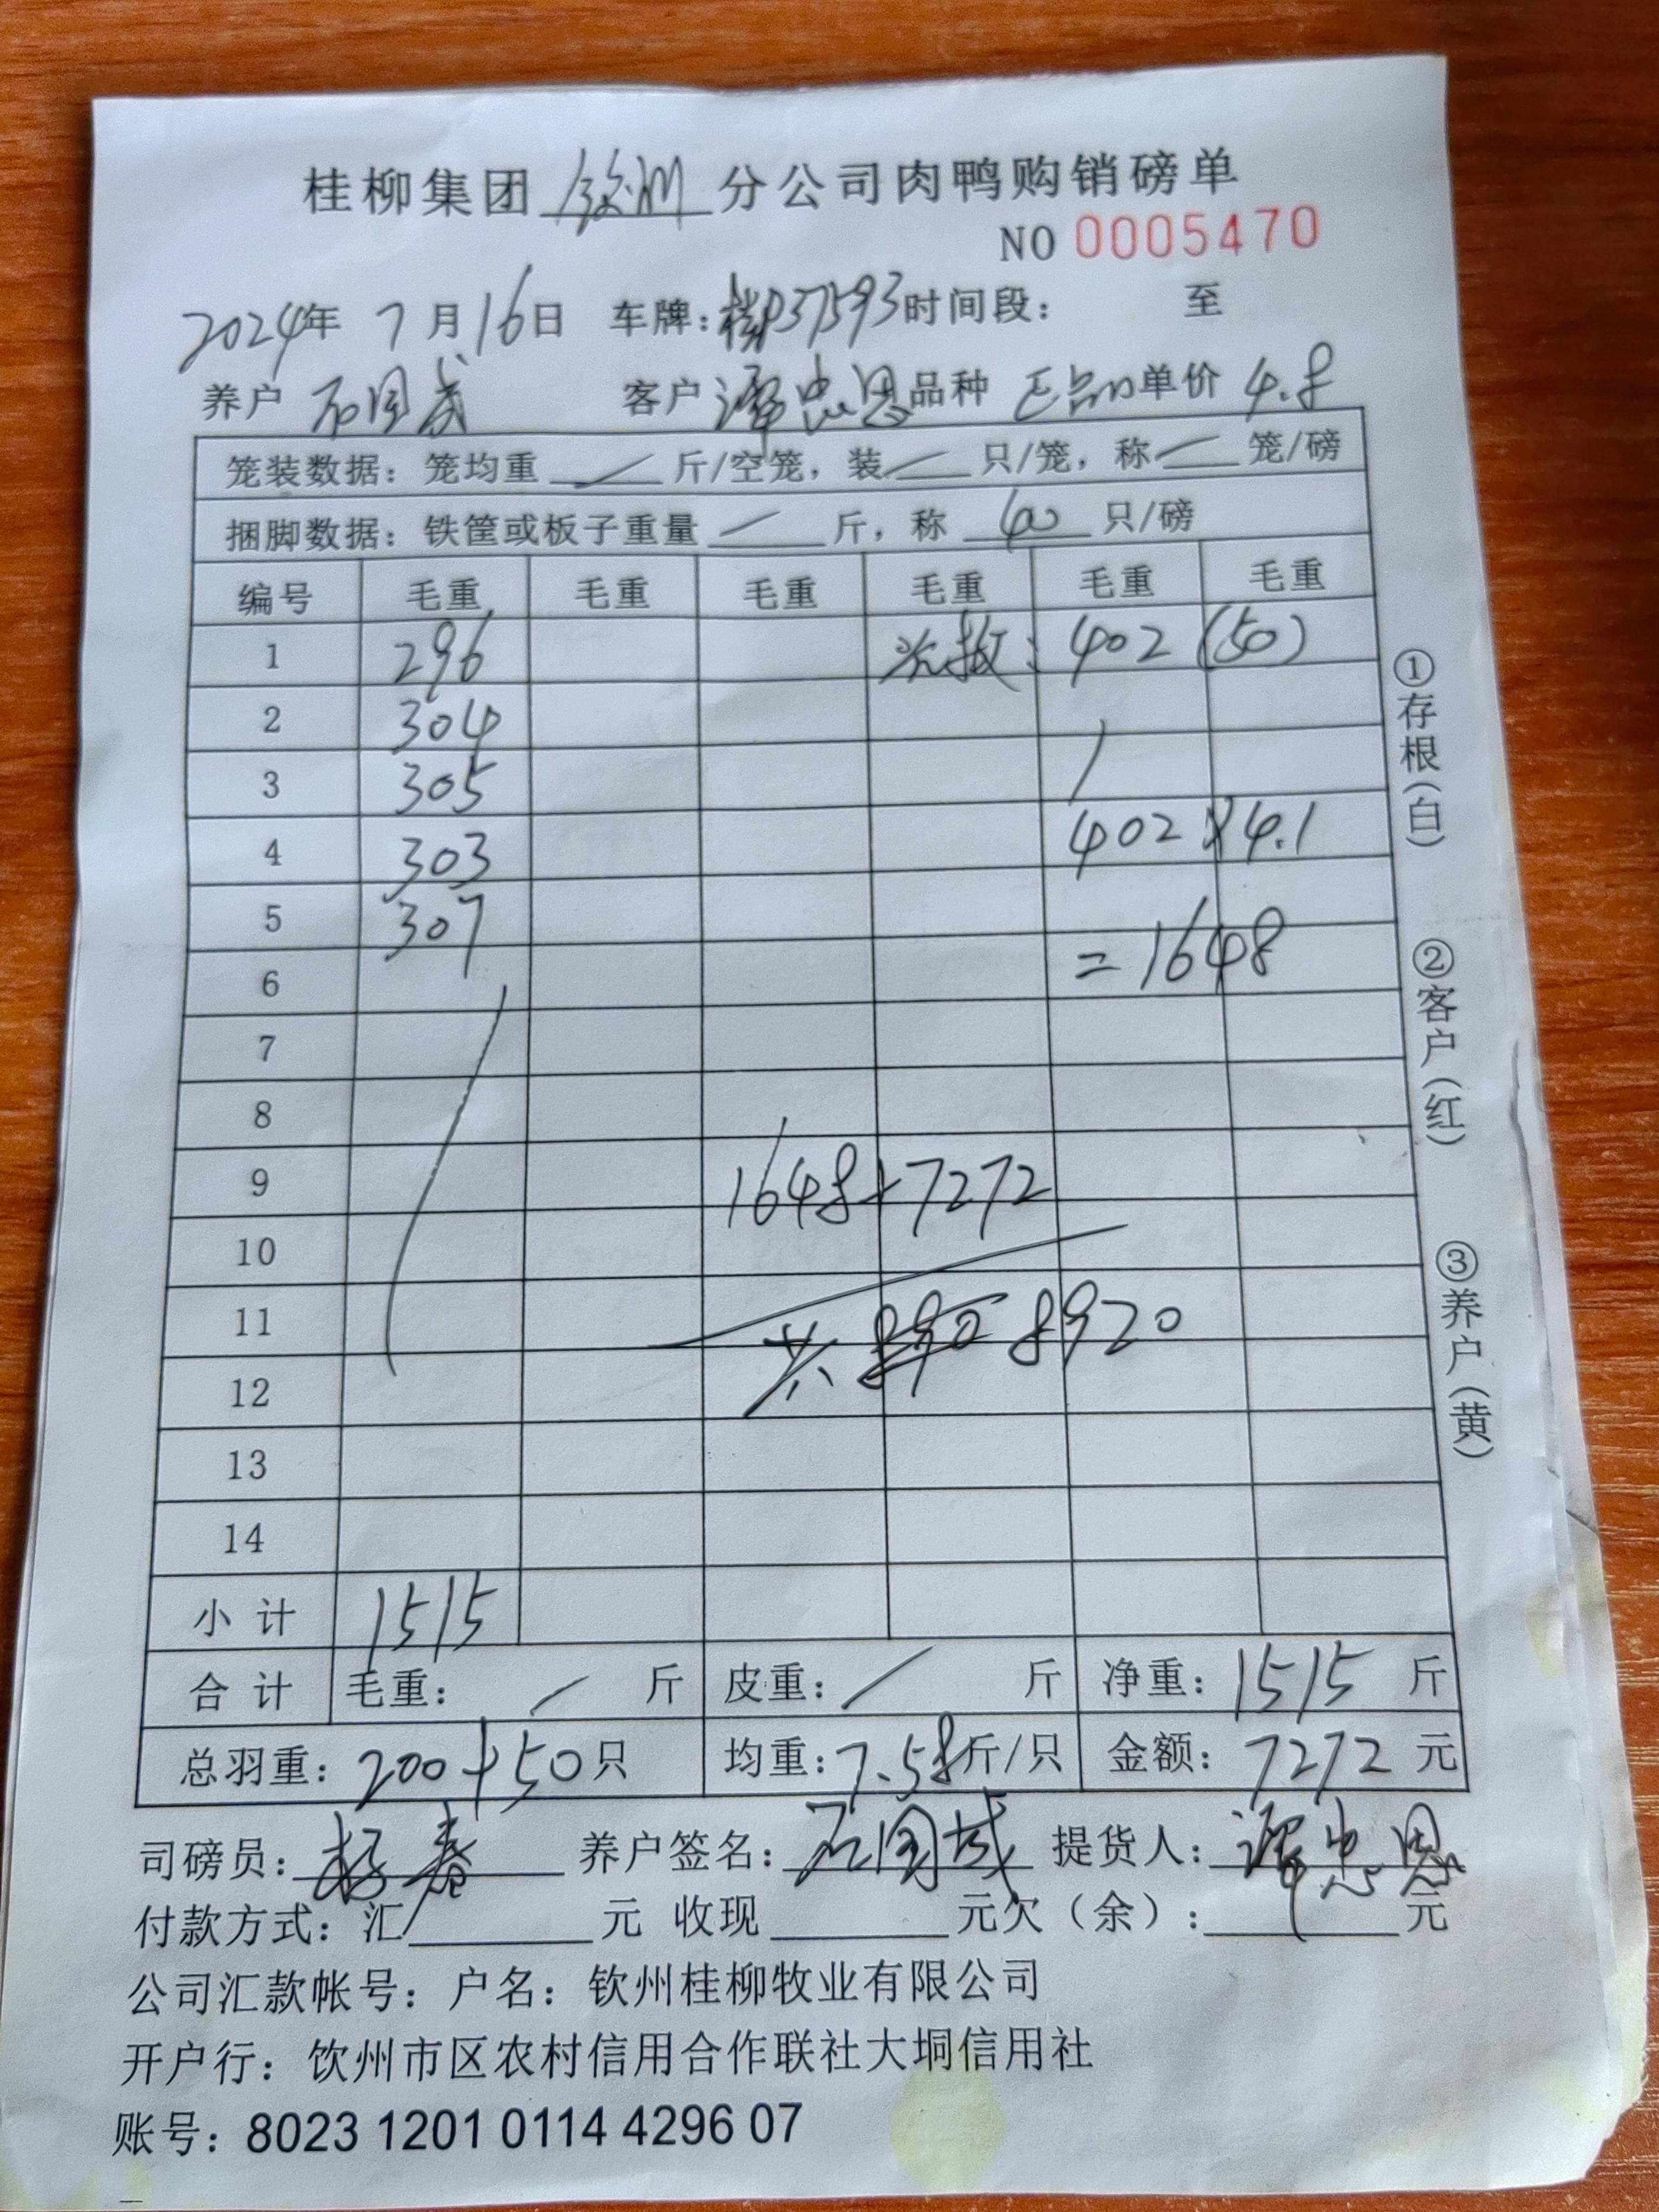 桂柳集团钦州分公司肉鸭购销磅单
NO 0005470
2024年 7月16日 车牌:桂P37593时间段: 至
养户 石国成 客户 谭忠恩 品种 正品 单价 4.8
笼装数据: 笼均重 / 斤/空笼, 装 / 只/笼, 称 / 笼/磅
捆脚数据: 铁筐或板子重量 / 斤, 称 40 只/磅
编号 毛重 毛重 毛重 毛重 毛重 毛重
1 296 次拔: 402 (50)
2 304
3 305 /
4 303 402×4.1
5 307
6 =1648
7
8
9 1648+7272
10
11 共 8920
12
13
14
小计 1515
合计 毛重: / 斤 皮重: / 斤 净重: 1515 斤
总羽重: 200+50只 均重: 7.58斤/只 金额: 7272 元
司磅员: 杨春 养户签名: 石国成 提货人: 谭忠恩
付款方式: 汇 元 收现 元欠(余): 元
公司汇款帐号: 户名: 钦州桂柳牧业有限公司
开户行: 饮州市区农村信用合作联社大垌信用社
账号: 8023 1201 0114 4296 07
①存根(白)
②客户(红)
③养户(黄)